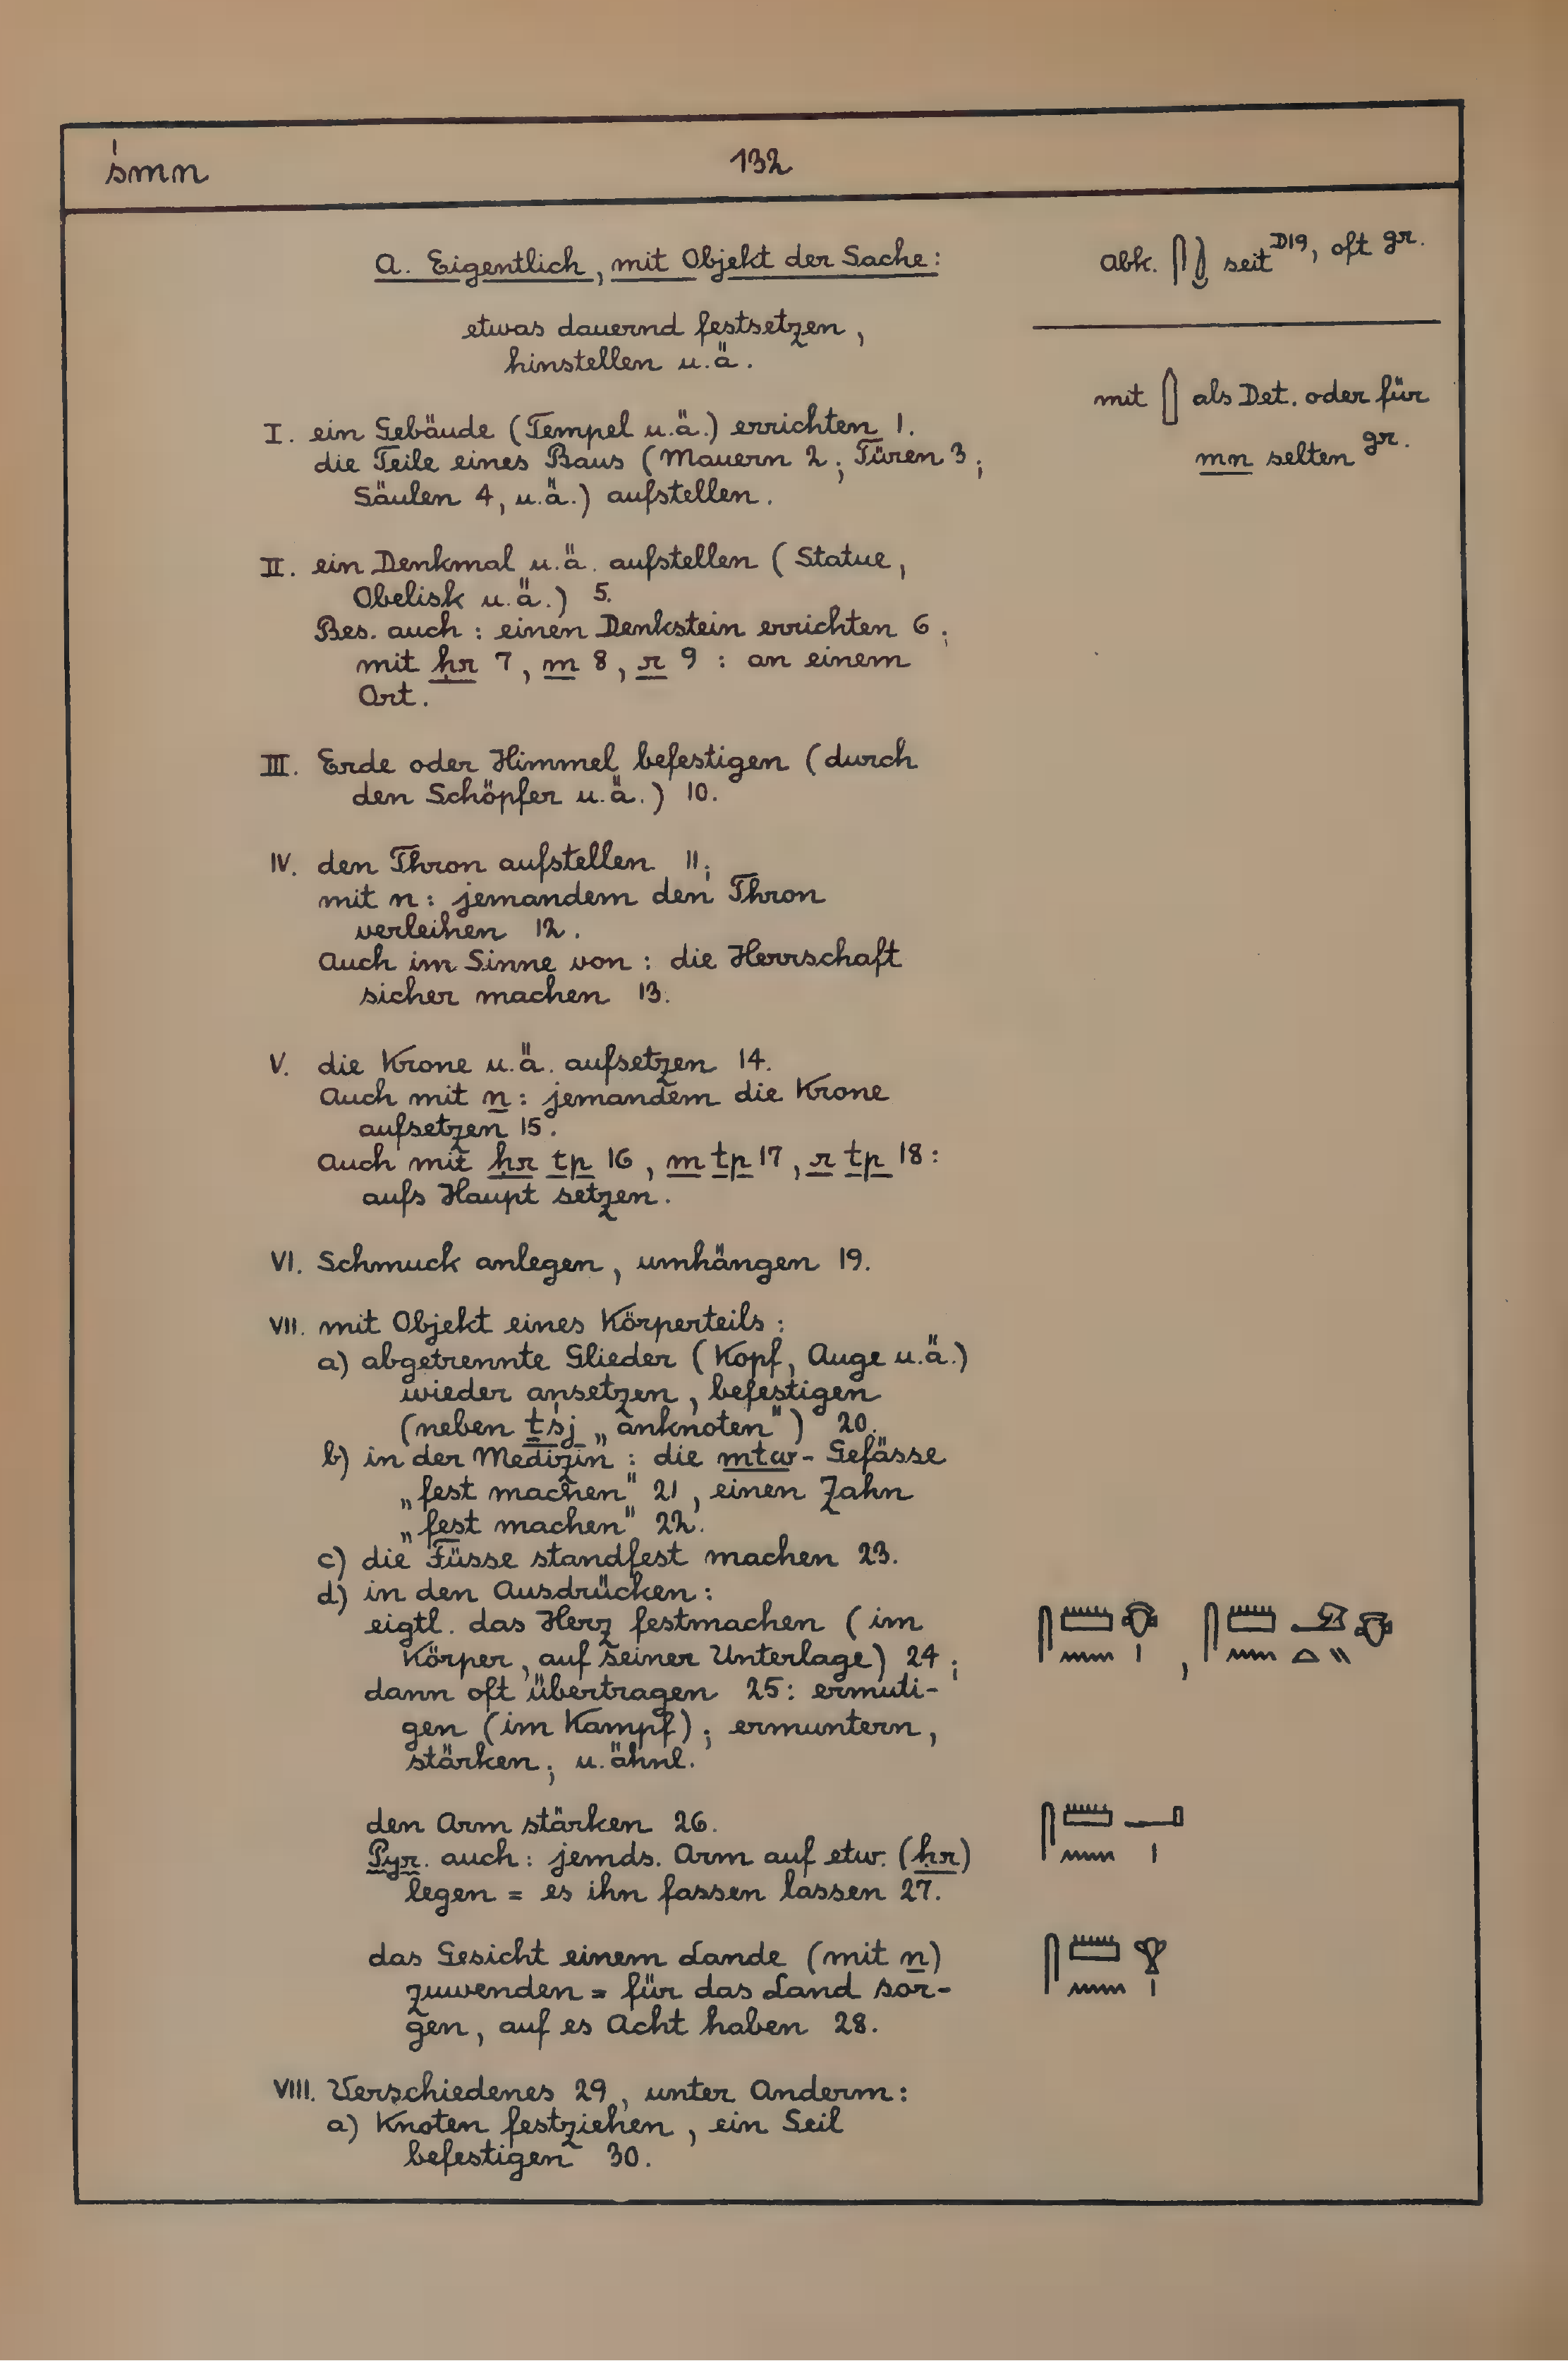 śmn 132
A. Eigentlich, mit Objekt der Sache:
etwas dauernd festsetzen,
hinstellen u.ä.
I. ein Gebäude (Tempel u.ä.) errichten 1.
die Teile eines Baus (Mauern 2; Türen 3;
Säulen 4, u.ä.) aufstellen.
II. ein Denkmal u.ä. aufstellen (Statue,
Obelisk u.ä.) 5.
Bes. auch: einen Denkstein errichten 6;
mit ḥr 7, m 8, r 9: an einem
Ort.
III. Erde oder Himmel befestigen (durch
den Schöpfer u.ä.) 10.
IV. den Thron aufstellen 11;
mit n: jemandem den Thron
verleihen 12.
Auch im Sinne von: die Herrschaft
sicher machen 13.
V. die Krone u.ä. aufsetzen 14.
Auch mit n: jemandem die Krone
aufsetzen 15.
Auch mit ḥr tp 16, m tp 17, r tp 18:
aufs Haupt setzen.
VI. Schmuck anlegen, umhängen 19.
VII. mit Objekt eines Körperteils:
a) abgetrennte Glieder (Kopf, Auge u.ä.)
wieder ansetzen, befestigen
(neben ṯśj „anknoten") 20.
b) in der Medizin: die mtw-Gefässe
„fest machen" 21, einen Zahn
„fest machen" 22.
c) die Füsse standfest machen 23.
d) in den Ausdrücken:
eigtl. das Herz festmachen (im
Körper, auf seiner Unterlage) 24;
dann oft übertragen 25: ermuti-
gen (im Kampf); ermuntern,
stärken; u. ähnl.
den Arm stärken 26.
Pyr. auch: jemds. Arm auf etw. (ḥr)
legen = es ihn fassen lassen 27.
das Gesicht einem Lande (mit n)
zuwenden = für das Land sor-
gen, auf es Acht haben 28.
VIII. Verschiedenes 29, unter Anderm:
a) Knoten festziehen, ein Seil
befestigen 30.
abk. seit D19, oft gr.
mit als Det. oder für
mn selten gr.